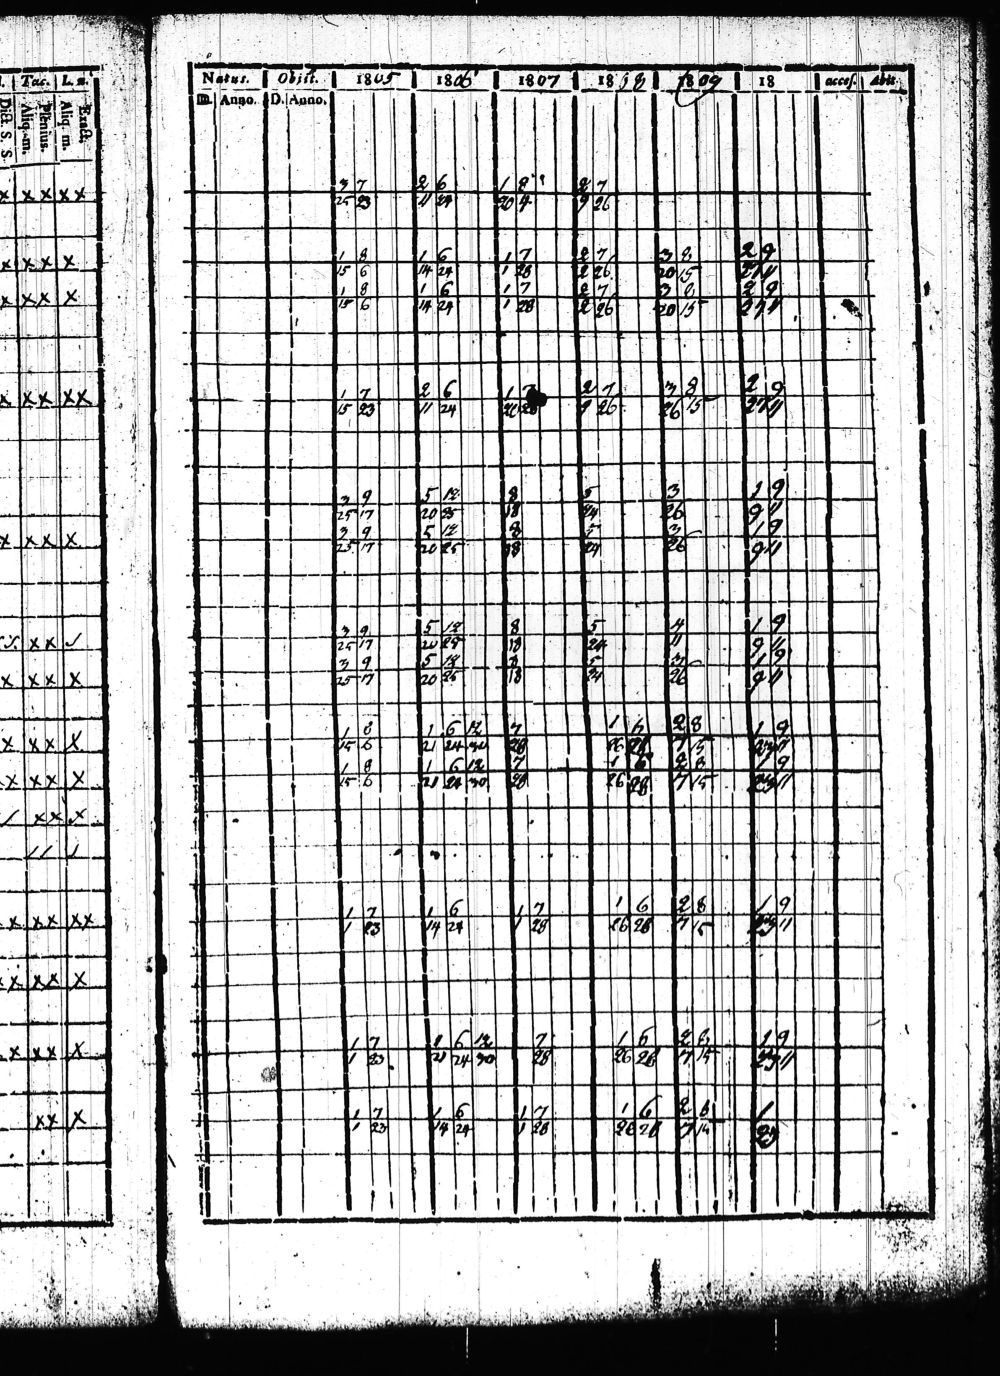 Tac. L. n. Natus. Obiit. 1805 1806 1807 1808 1809 18 accef. Abit.
Dict. S. S. Aliq. m. plenius. Aliq. m. Exact. m. Anno. D. Anno.
3 7 2 6 1 8 2 7
x x x x 25 23 11 24 20 4 9 26
1 8 1 6 1 7 2 7 3 8 2 9
x x x x 15 6 14 24 1 28 2 26 20 15 27 11
1 8 1 6 1 7 2 7 3 8 2 9
x x x x 15 6 14 24 1 28 2 26 20 15 27 11
1 7 2 6 1 2 7 3 8 2 9
x x x x x 15 23 11 24 9 26 26 15 27 11
3 9 5 12 8 5 3 1 9
25 17 20 25 18 24 26 9 11
3 9 5 12 8 5 3 1 9
x x x x 25 17 20 25 18 24 26 9 11
3 9 5 12 8 5 4 1 9
x x 25 17 20 25 18 24 11 9 11
3 9 5 12 8 5 3 1 9
x x x x 25 17 20 25 18 24 26 9 11
1 8 1 6 12 7 1 6 2 8 1 9
x x x x 15 6 21 24 30 28 26 28 7 15 23 11
1 8 1 6 12 7 1 6 2 8 1 9
x x x x 15 6 21 24 30 28 26 28 7 15 23 11
x x x
1 7 1 6 1 7 1 6 2 8 1 9
x x x x x 1 23 14 24 1 28 26 28 7 15 23 11
x x x x
1 7 1 6 12 7 1 6 2 8 1 9
x x x x 1 23 21 24 30 28 26 28 7 15 23 11
1 7 1 6 1 7 1 6 2 8 1
x x x 1 23 14 24 1 28 26 28 7 15 23